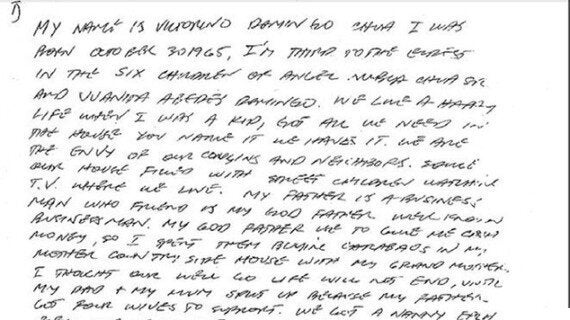 1)
MY NAME IS VICTORINO DOMINGO CHUA I WAS
BORN OCTOBER 30 1965, I'M THIRD TO THE ELDEST
IN THE SIX CHILDREN OF ANGEL CHUA SR
AND JUANITA DOMINGO. WE LIVE A HAPPY
LIFE WHEN I WAS A KID, GOT ALL WE NEED IN
THE HOUSE YOU NAME IT WE HAVE IT. WE ARE
THE ENVY OF OUR COUSINS AND NEIGHBORS.
OUR HOUSE FILLED WITH STREET CHILDREN WATCHING
T.V. WHERE WE LIVE. MY FATHER IS A BUSINESS
MAN WHO FRIEND IS MY GOD FATHER WELL KNOWN
BUSINESS MAN. MY GOD FATHER USE TO GIVE ME CASH
MONEY, SO I SPENT THEM BUYING CARABAOS IN MY
MOTHER COUNTRY SIDE HOUSE WITH MY GRAND MOTHER.
I THOUGHT OUR WELL GO LIFE WILL NOT END, UNTIL
MY DAD + MY MUM SPLIT UP BECAUSE MY FATHER
GOT FOUR WIVES TO SUPPORT. WE GOT A NANNY EACH